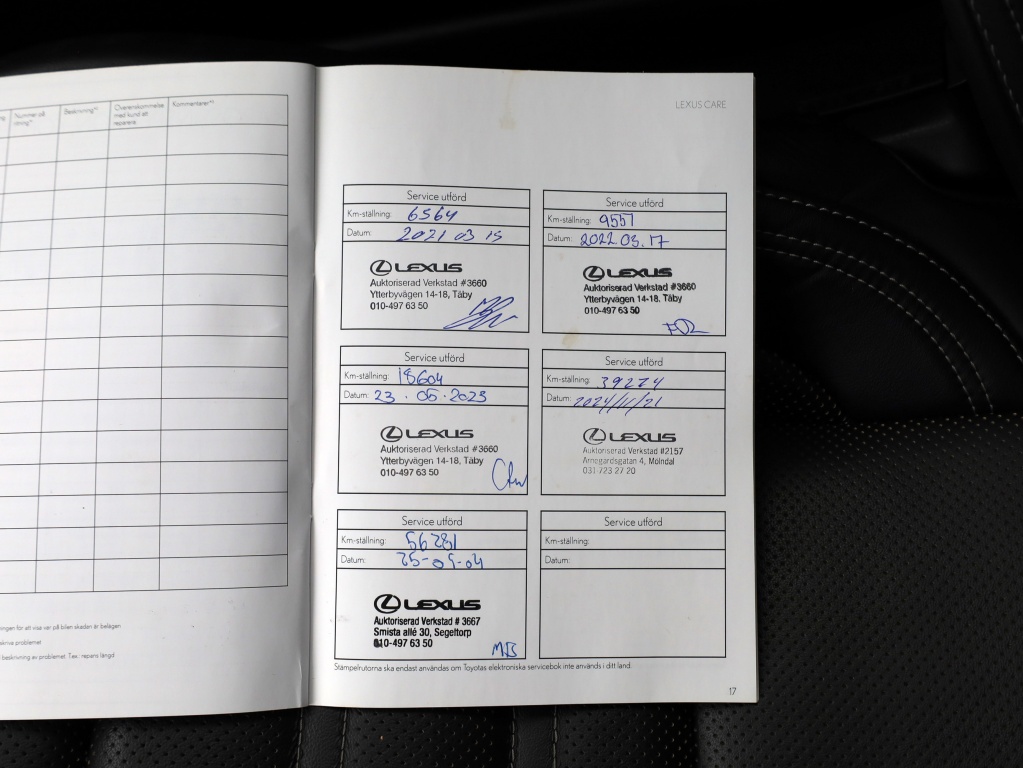 Nummer på
ritning*)
Beskrivning*)
Överenskommelse
med kund att
reparera
Kommentarer*)
ningen för att visa var på bilen skadan är belägen
skriva problemet
beskrivning av problemet. T.ex.: repans längd
LEXUS CARE
Service utförd
Km-ställning: 6564
Datum: 2021 03 15
LEXUS
Auktoriserad Verkstad #3660
Ytterbyvägen 14-18, Täby
010-497 63 50
Service utförd
Km-ställning: 9557
Datum: 2022.03.17
LEXUS
Auktoriserad Verkstad #3660
Ytterbyvägen 14-18, Täby
010-497 63 50
Service utförd
Km-ställning: 18604
Datum: 23.05.2023
LEXUS
Auktoriserad Verkstad #3660
Ytterbyvägen 14-18, Täby
010-497 63 50
Service utförd
Km-ställning: 39274
Datum: 2024/11/21
LEXUS
Auktoriserad Verkstad #2157
Arnegårdsgatan 4, Mölndal
031-723 27 20
Service utförd
Km-ställning: 56281
Datum: 25-09-04
LEXUS
Auktoriserad Verkstad # 3667
Smista allé 30, Segeltorp
010-497 63 50
Service utförd
Km-ställning:
Datum:
Stämpelrutorna ska endast användas om Toyotas elektroniska servicebok inte används i ditt land.
17